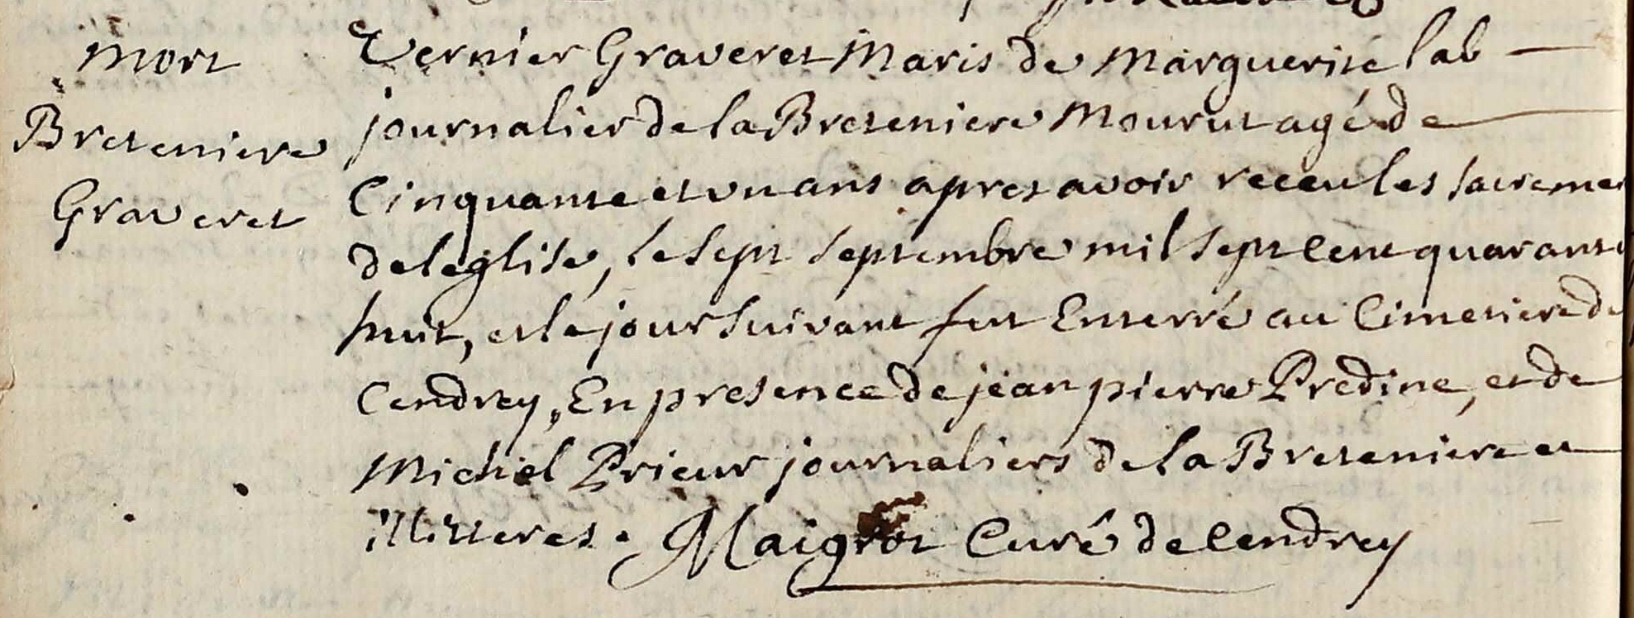 mort
Breteniere
Graveret
Vernier Graveret Maris de Marguerite lab
journalier de la Breteniere Mourut agé de
Cinquante et un ans apres avoir receu les sacreme
de leglise, le sept septembre mil sept cent quarante
huit, et le jour suivant fut Enterré au Cimetiere de
Cendrey, En presence de jean pierre Predine, et de
Michel Prieur journaliers de la Breteniere et
illitteres. Maigrot Curé de Cendrey